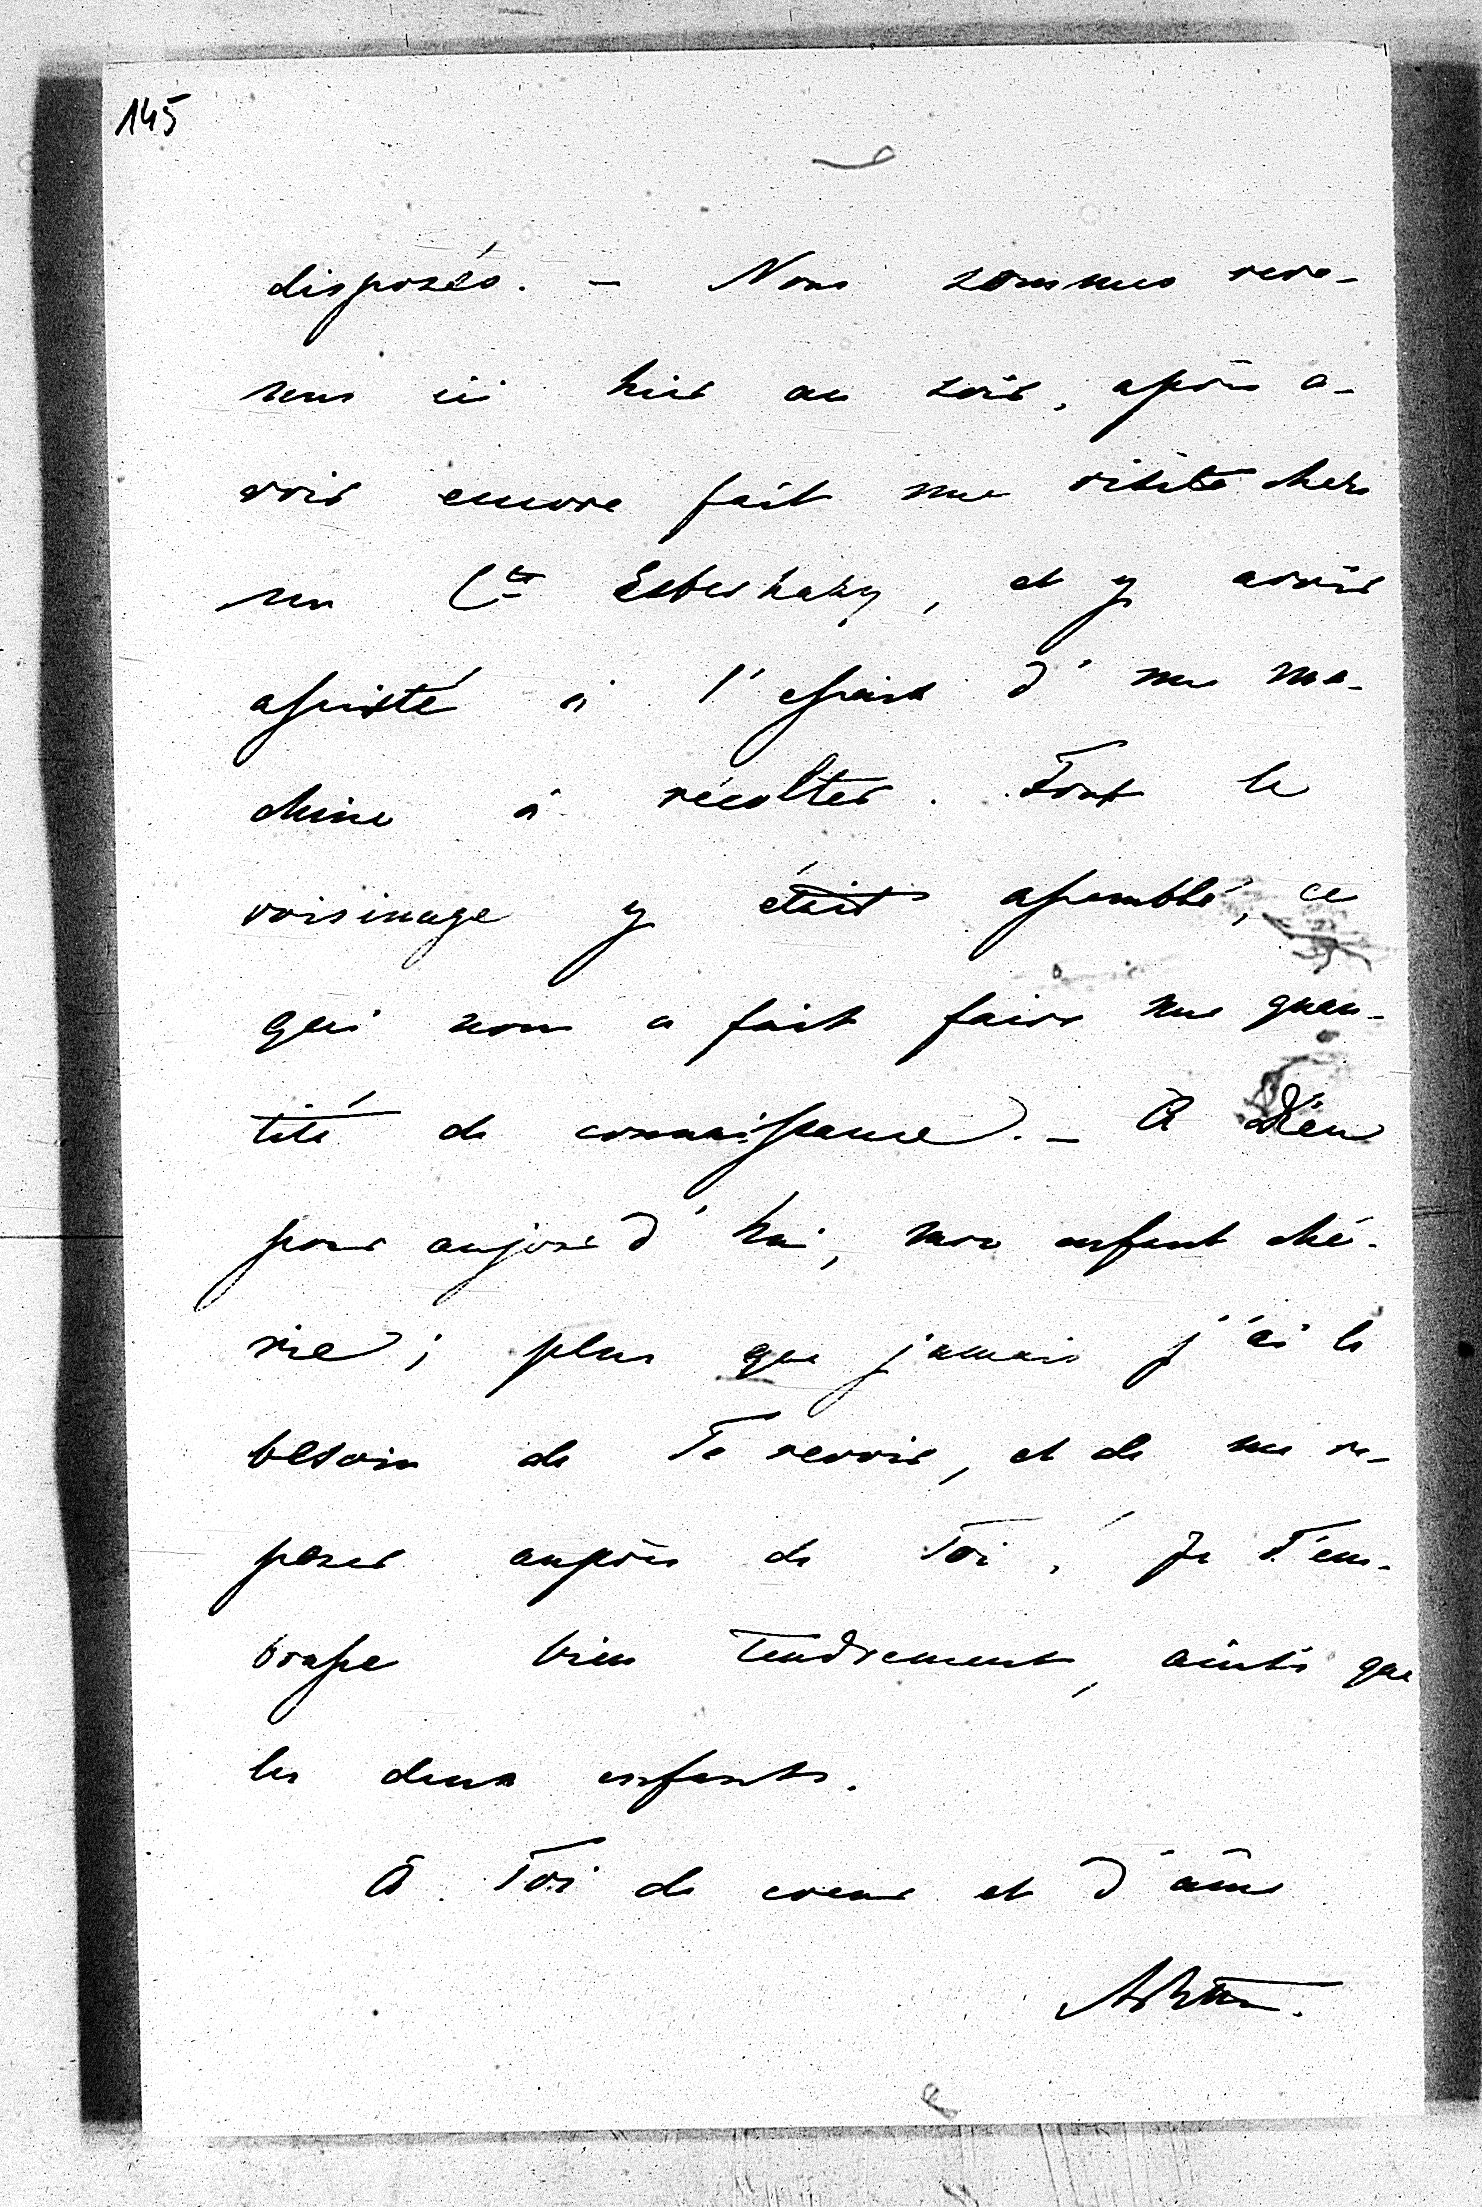 145
disposés. – Nous sommes reve-
nus ici hier au soir, après a-
voir encore fait une visite chez
un Cte Esterhazy, et y avoir
assisté à l'essai d'une ma-
chine à récolter. Tout le
voisinage y était assemblé, ce
qui nous a fait faire une quan-
tité de connaissance. – À Dieu
pour aujourd'hui, mon enfant ché-
rie; plus que jamais j'ai le
besoin de Te revoir, et de me re-
poser auprès de Toi. Je T'em-
brasse bien tendrement, ainsi que
les deux enfants.
À Toi de coeur et d'âme